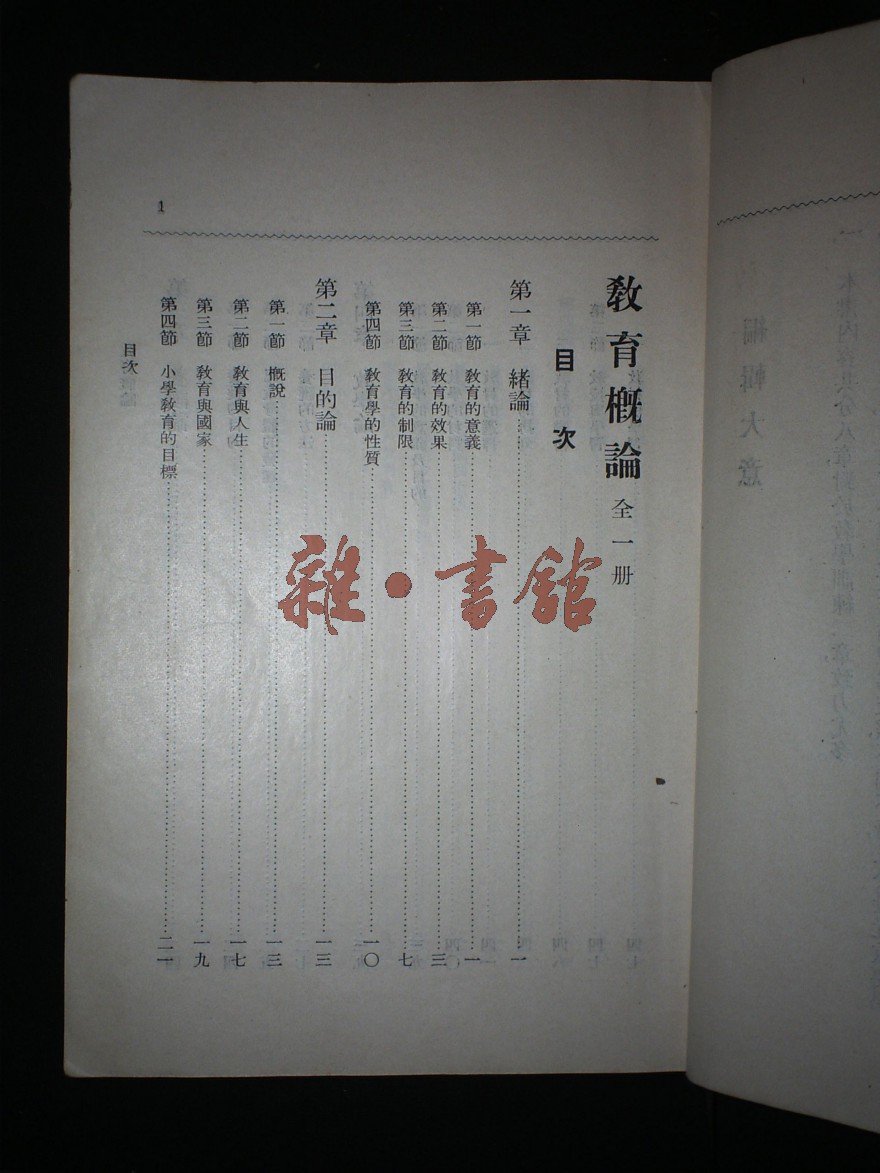 教育概論 全一册
目次
第一章 緒論……一
第一節 教育的意義……一
第二節 教育的效果……三
第三節 教育的制限……七
第四節 教育學的性質……一〇
第二章 目的論……一三
第一節 概說……一三
第二節 教育與人生……一七
第三節 教育與國家……一九
第四節 小學教育的目標……二一
目次
1
雜·書館
編輯大意